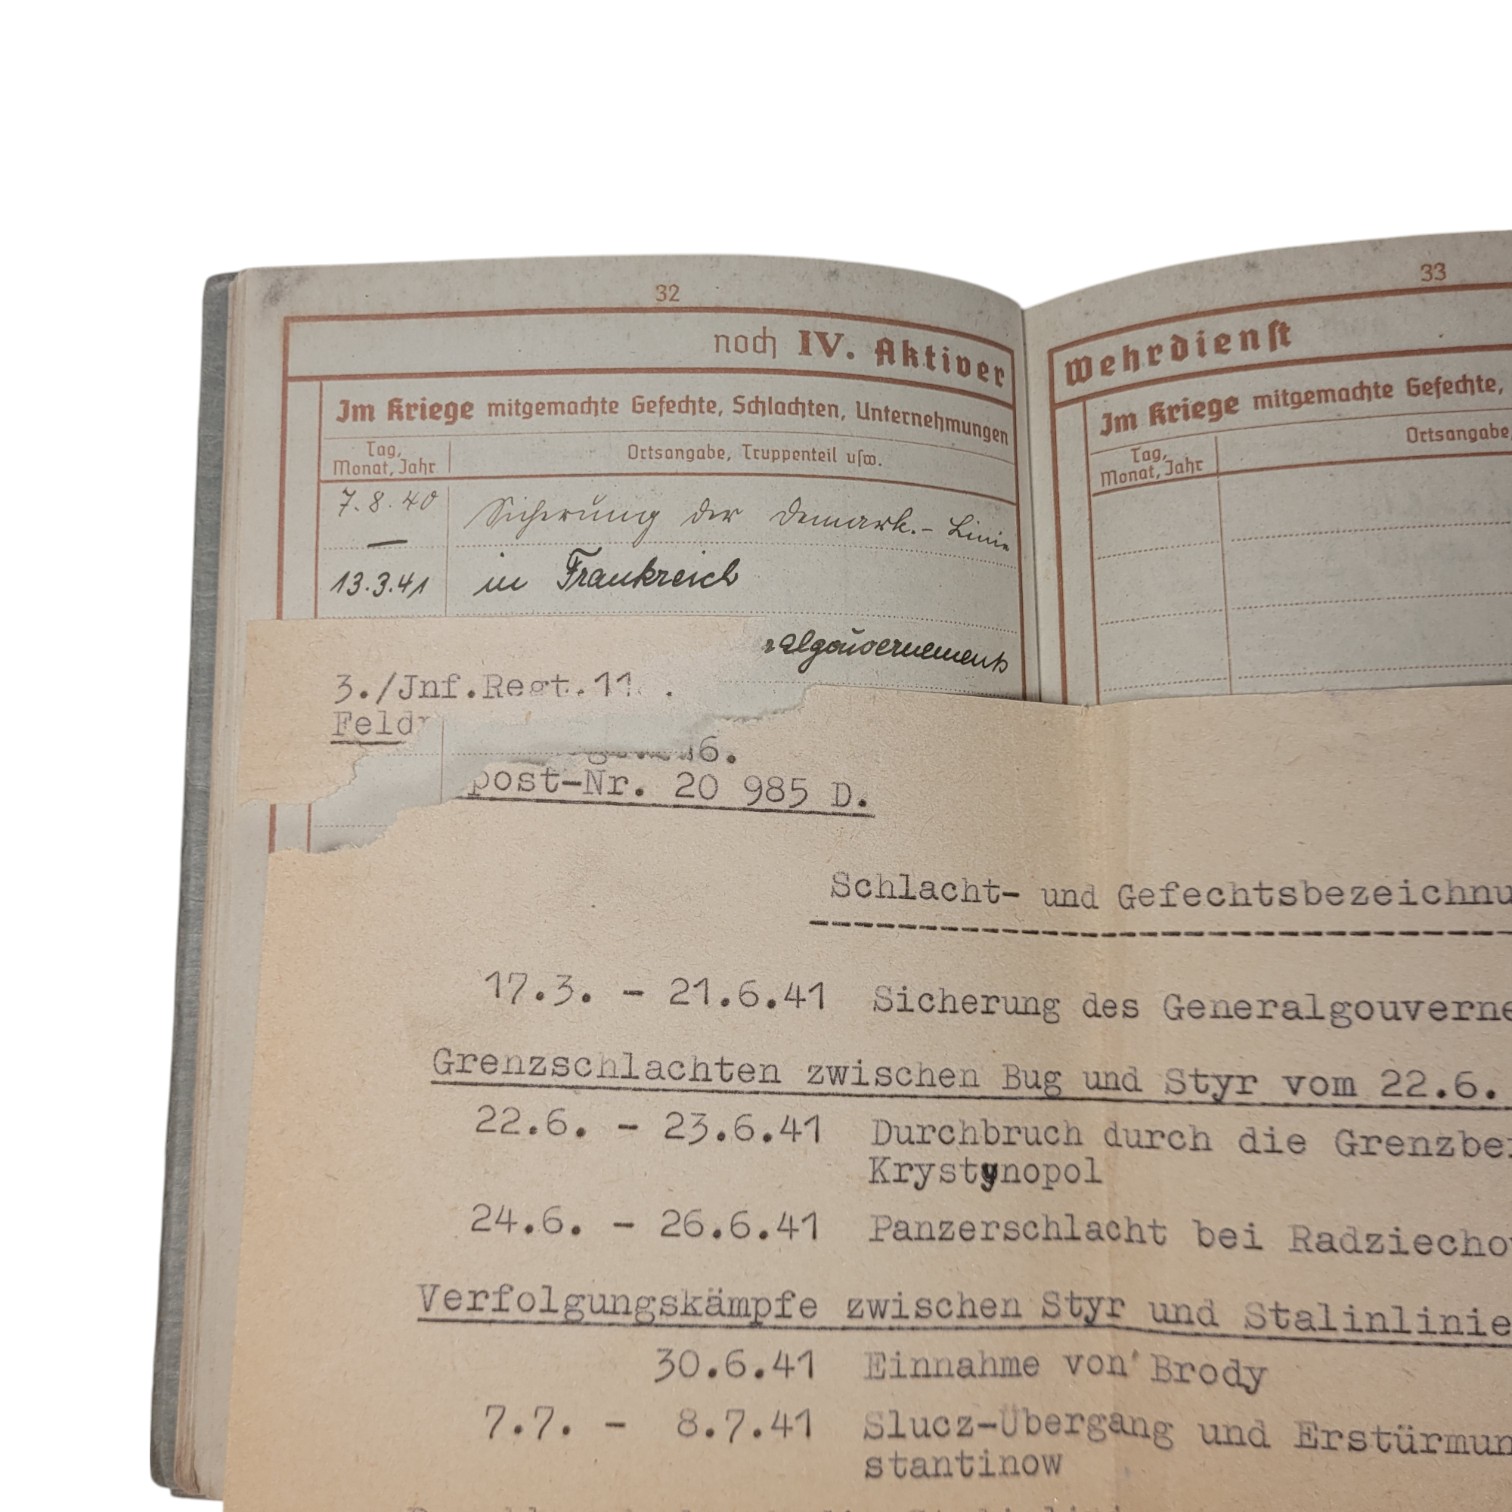 32
noch IV. Aktiver
Im Kriege mitgemachte Gefechte, Schlachten, Unternehmungen
Tag, Monat, Jahr
Ortsangabe, Truppenteil usw.
7.8.40 Sicherung der Demark.- Linie
—
13.3.41 in Frankreich
algouvernements
33
Wehrdienst
Im Kriege mitgemachte Gefechte,
Tag, Monat, Jahr
Ortsangabe,
3./Jnf.Regt.11 .
Feld
6.
post-Nr. 20 985 D.
Schlacht- und Gefechtsbezeichnu
17.3. - 21.6.41 Sicherung des Generalgouverne
Grenzschlachten zwischen Bug und Styr vom 22.6.
22.6. - 23.6.41 Durchbruch durch die Grenzbe
Krystynopol
24.6. - 26.6.41 Panzerschlacht bei Radziecho
Verfolgungskämpfe zwischen Styr und Stalinlinie
30.6.41 Einnahme von Brody
7.7. - 8.7.41 Slucz-Übergang und Erstürmun
stantinow